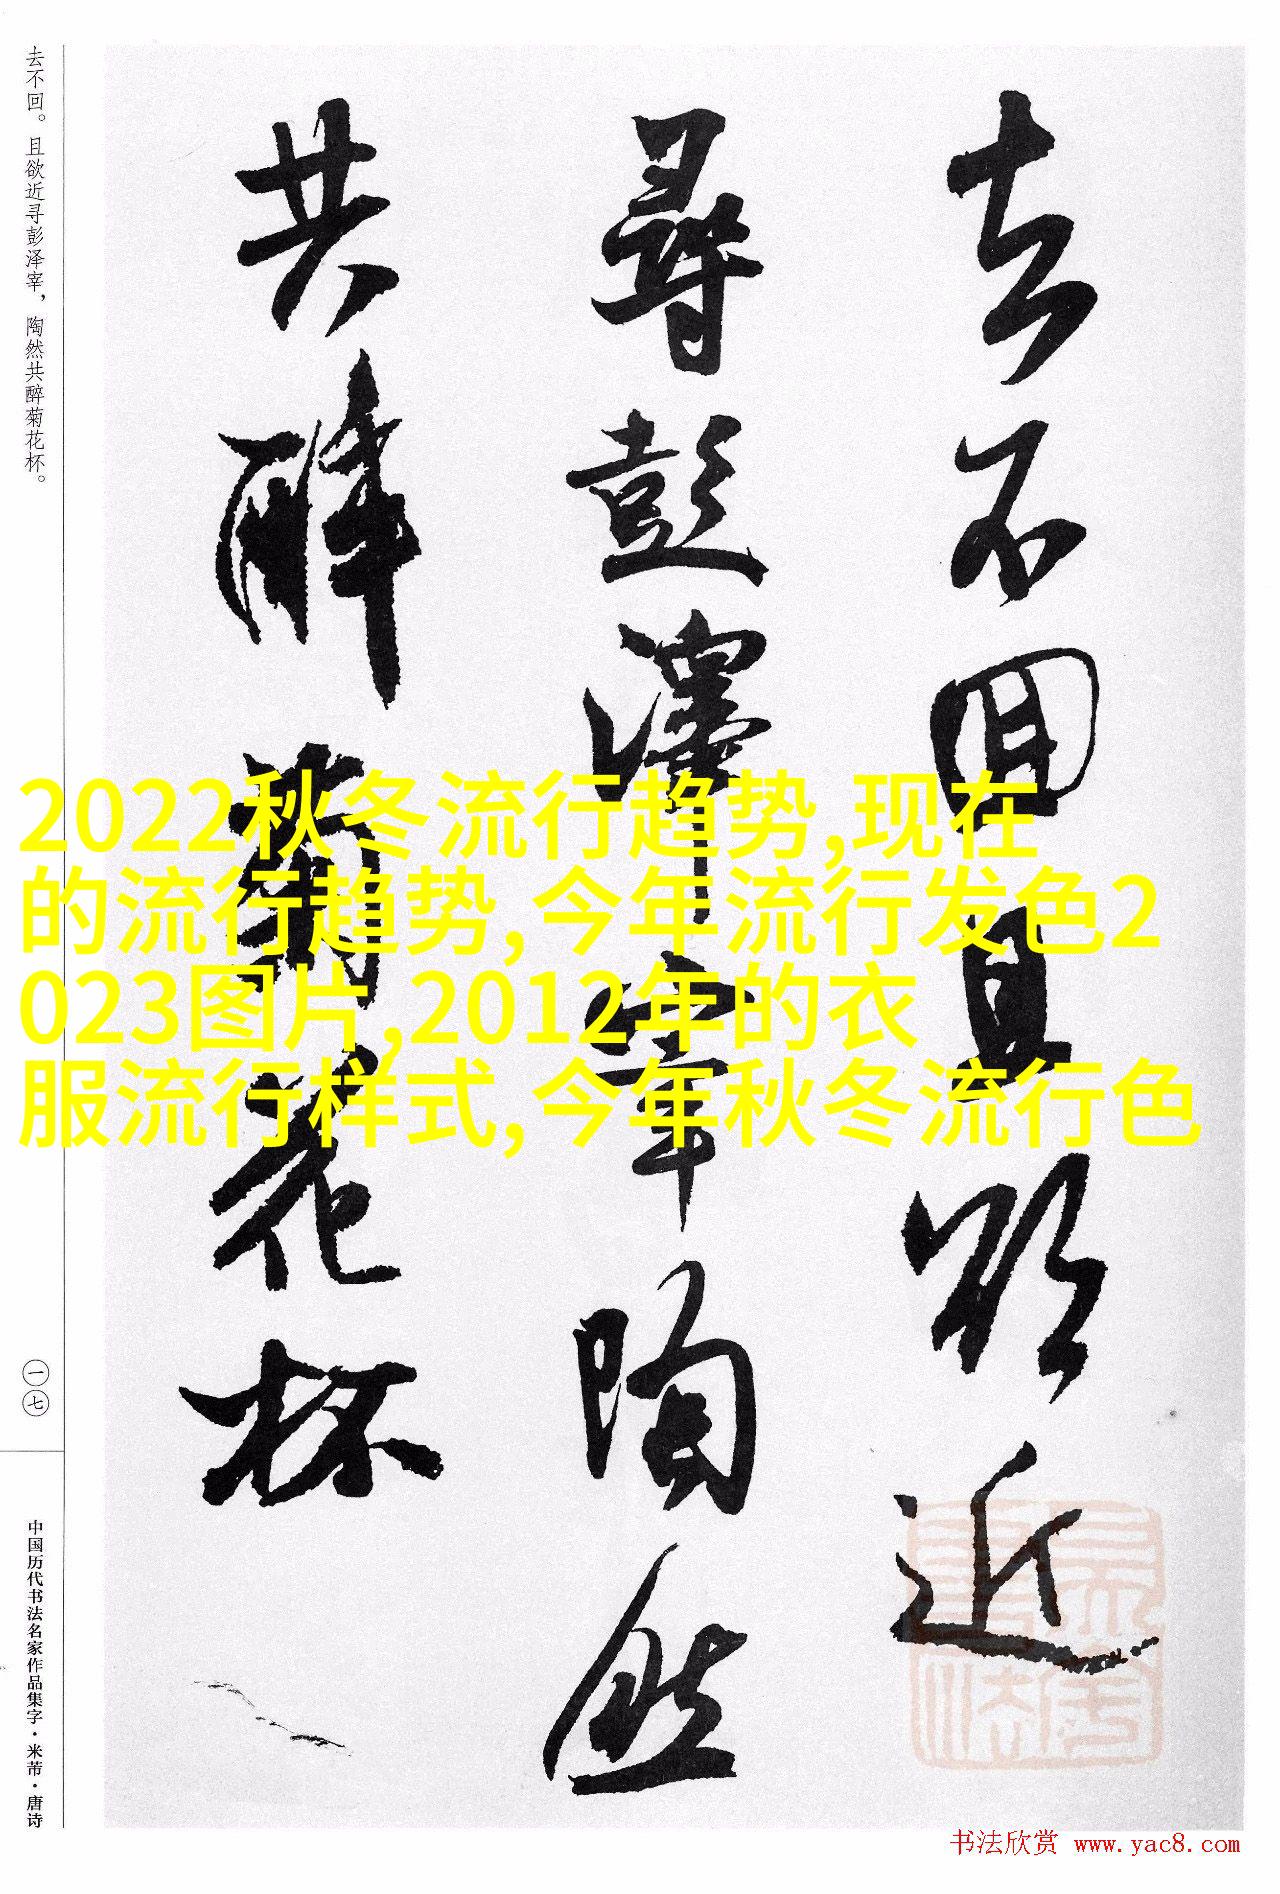 去不回且欲近
尋彭澤宰陶然
共醉菊花杯
去不回。且欲近寻彭泽宰，陶然共醉菊花杯。
一七
中国历代书法名家作品集字·米芾·唐诗
2022秋冬流行趋势,现在
的流行趋势,今年流行发色2
023图片,2012年的衣
服流行样式,今年秋冬流行色
书法欣赏 www.yac8.com